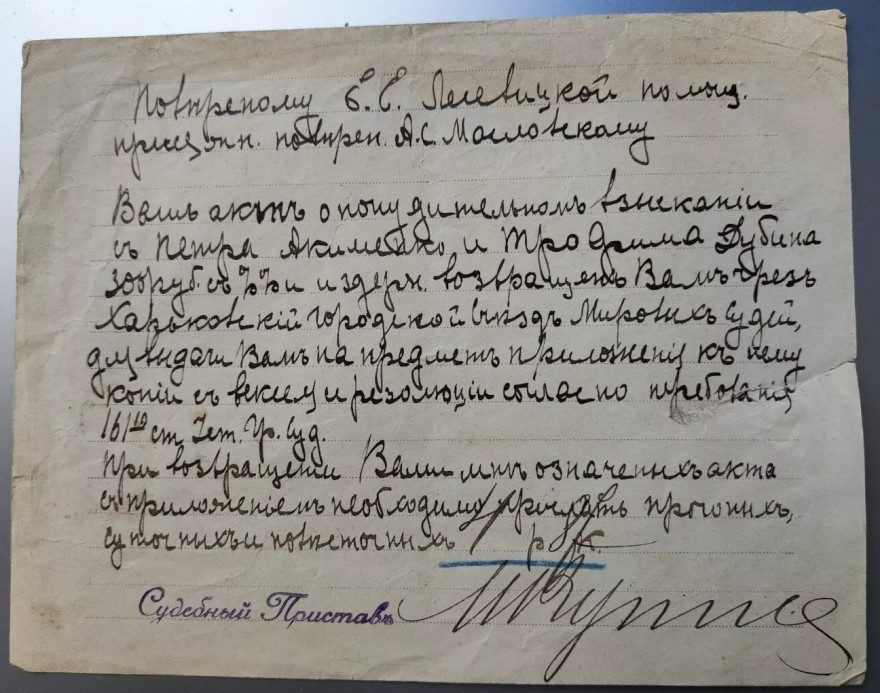 Повѣреному Е. Е. Лесевицкой помощ.
присяжн. повѣрен. А. С. Масловскому
Вашъ актъ о понудительномъ взысканіи
съ Петра Акименко и Трофима Дубина
300 руб. съ %% и издерж. возвращенъ Вамъ чрезъ
Харьковскій Городской Съѣздъ Мировыхъ Судей,
для выдачи Вамъ на предметъ приложенія къ нему
копіи съ векселя и резолюціи согласно требованія
161¹⁰ ст. Уст. Гр. Суд.
При возвращеніи Вами мнѣ означеныхъ акта
съ приложеніемъ необходимо прислать прогоныхъ,
суточныхъ и повѣсточныхъ р. к.
Судебный Приставъ